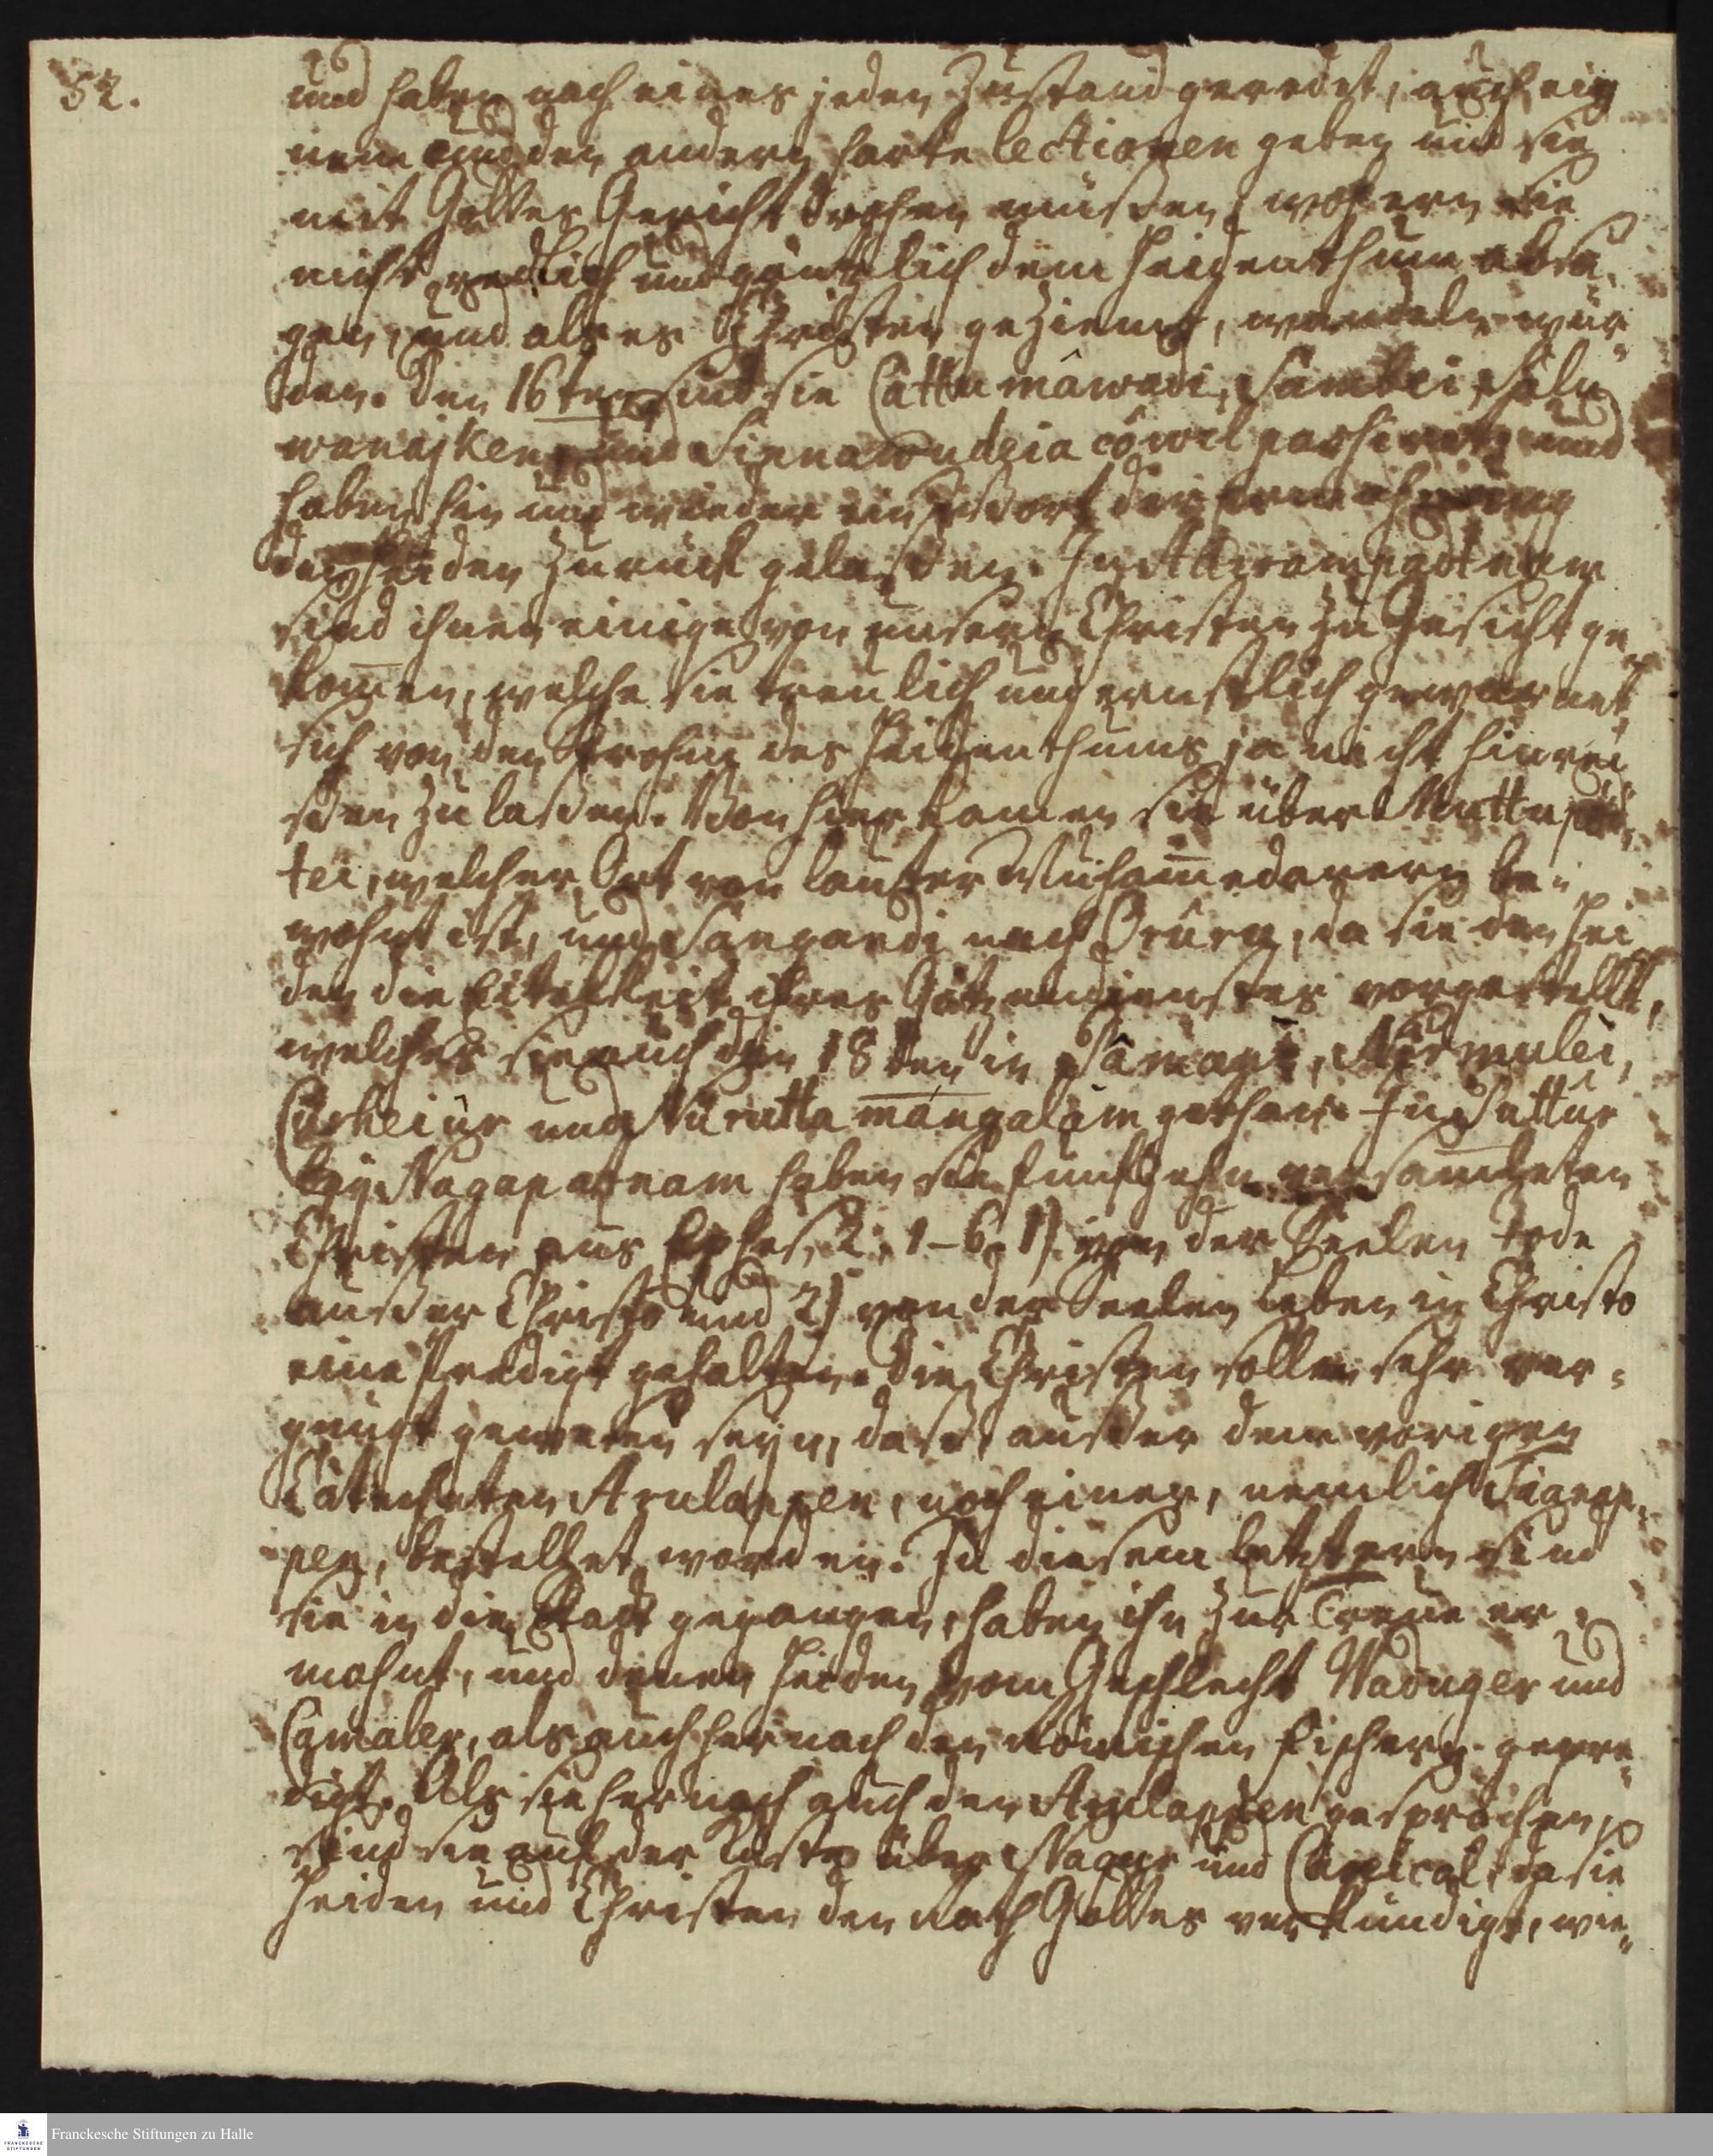 52.
und haben nach eines jeden Zustand geredet, auch ei-
nem und den andern harte lectionen geben und sie
mit Gottes Gericht drohen müssen, wofern sie
nicht redlich und gäntzlich dem Heidenthum absa-
gen, und als es Christen geziemet, wandeln wür-
den. Den 16ten sind sie Cáttumáwadi, Sambei,
und Sinnawudeia côwil passiret, und
haben hin und wieder ein Wort der Ermahnung
den Heiden zurück gelassen. In Attirampadtnam
sind ihnen einige von unsern Christen zu Gesicht ge-
kom̅en, welche sie treulich und ernstlich gewarnet
sich von dem Strohm des Heidenthums ja nicht hinrei-
ssen zu lassen. Von hier kamen sie über Muttupöt-
tei, welcher Ort von lauter Muham̅edanern be-
wohnt ist, und Sangandi nach Orûra, da sie den Hei-
den die Eitelkeit ihres Götzendienstes vorgestellt,
welches sie auch den 18ten in Nirmulei,
und mángalám gethan. In Sattúr
bey Nagapatnam haben sie funfzehn versam̅leten
Christen aus Ephes. 2, 1-6. 1) von der Seelen Tode
ausser Christo und 2) von der Seelen Leben in Christo
eine Predigt gehalten. Die Christen sollen sehr ver-
gnügt gewesen seyn, dass ausser dem vorigen
Catecheten Arulappen, noch einer, nemlich
pen, bestellet worden. Zu diesem letztern sind
sie in die Stadt gegangen, haben ihn zur Treue er-
mahnt, und denen Heiden vom Geschlecht Waduger und
Camaler, als auch hernach den Römischen Fischern gepre-
digt. Als sie hernach auch den Arulappen gesprochen,
sind sie auf der Küste über Nagur und Careical, da sie
Heiden und Christen den Rath Gottes verkündigt, wie-
Franckesche Stiftungen zu Halle